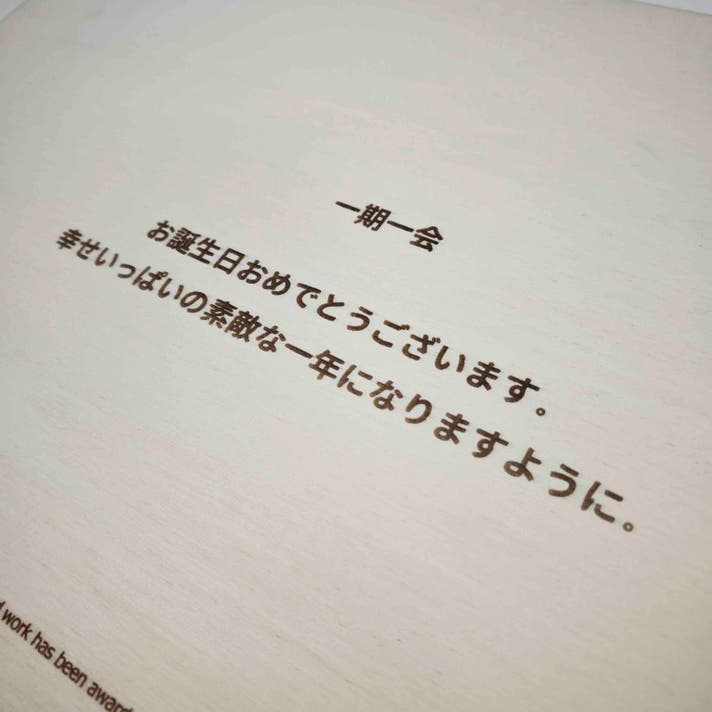 一期一会
お誕生日おめでとうございます。
幸せいっぱいの素敵な一年になりますように。
work has been